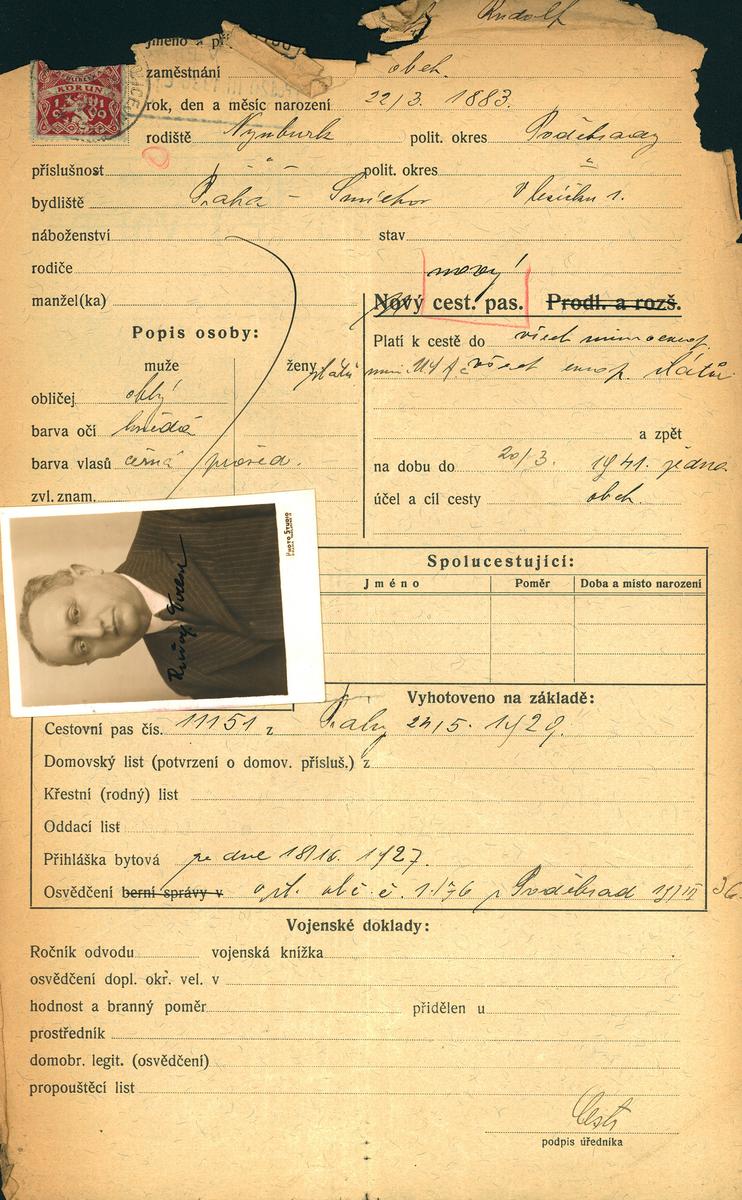 Rudolf
jméno a
zaměstnání obch.
KORUN
rok, den a měsíc narození 22/3. 1883.
rodiště Nymburk polit. okres Poděbrady
příslušnost -„- polit. okres „
bydliště Praha - Smíchov V lesíčku 1.
náboženství stav
rodiče nový!
manžel(ka) Nový cest. pas. Prodl. a rozš.
Popis osoby: Platí k cestě do všech mimoevrop.
muže ženy států mimo všech evrop. států
obličej oblý
barva očí hnědá a zpět
barva vlasů černá prošed. na dobu do 20/3. 1941. jedna
zvl. znam. účel a cíl cesty obch.
PHOTO STUDIO
Spolucestující:
Jméno Poměr Doba a místo narození
Vyhotoveno na základě:
Cestovní pas čís. 11151 z Prahy 24/5. 1929.
Domovský list (potvrzení o domov. přísluš.) z
Křestní (rodný) list
Oddací list
Přihláška bytová ze dne 18/6. 1927.
Osvědčení berní správy v
Vojenské doklady:
Ročník odvodu vojenská knížka
osvědčení dopl. okr. vel. v
hodnost a branný poměr přidělen u
prostředník
domobr. legit. (osvědčení)
propouštěcí list
podpis úředníka